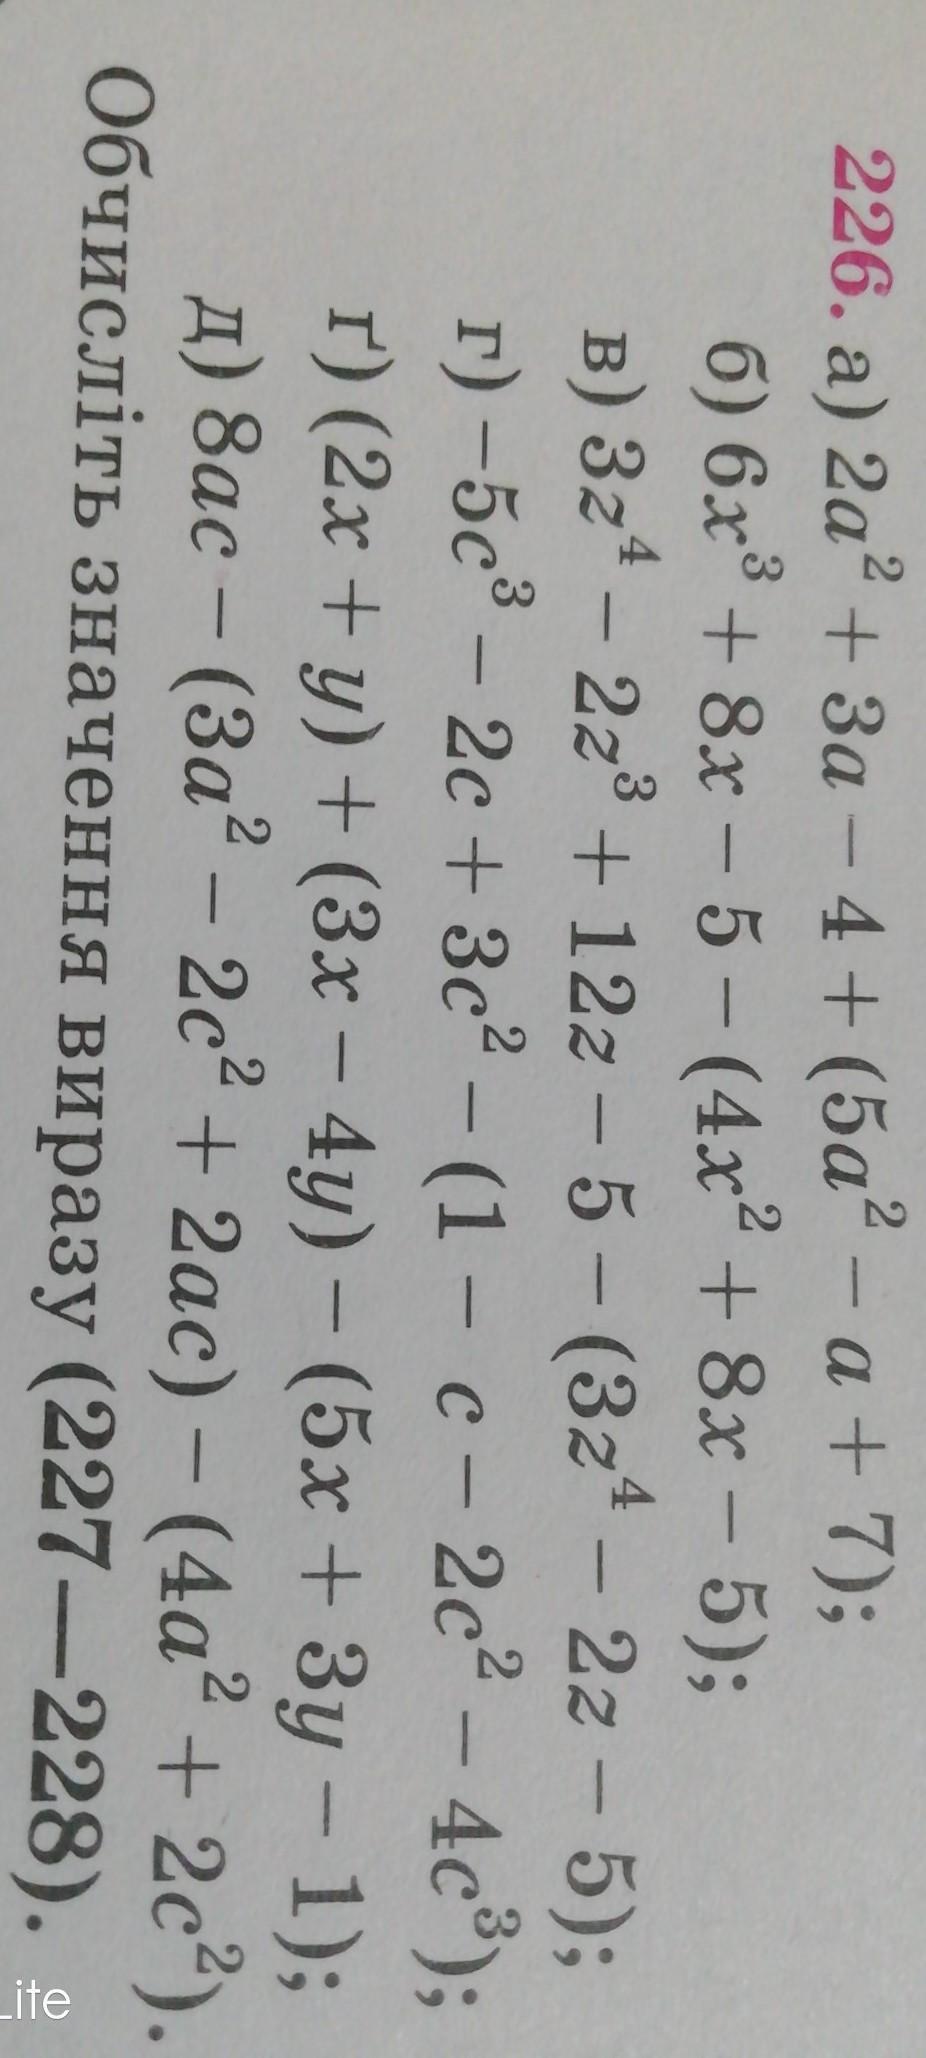 226. а) 2a² + 3a − 4 + (5a² − a + 7);
б) 6x³ + 8x − 5 − (4x² + 8x − 5);
в) 3z⁴ − 2z³ + 12z − 5 − (3z⁴ − 2z − 5);
г) −5c³ − 2c + 3c² − (1 − c − 2c² − 4c³);
ґ) (2x + y) + (3x − 4y) − (5x + 3y − 1);
д) 8ac − (3a² − 2c² + 2ac) − (4a² + 2c²).
Обчисліть значення виразу (227—228).
Lite